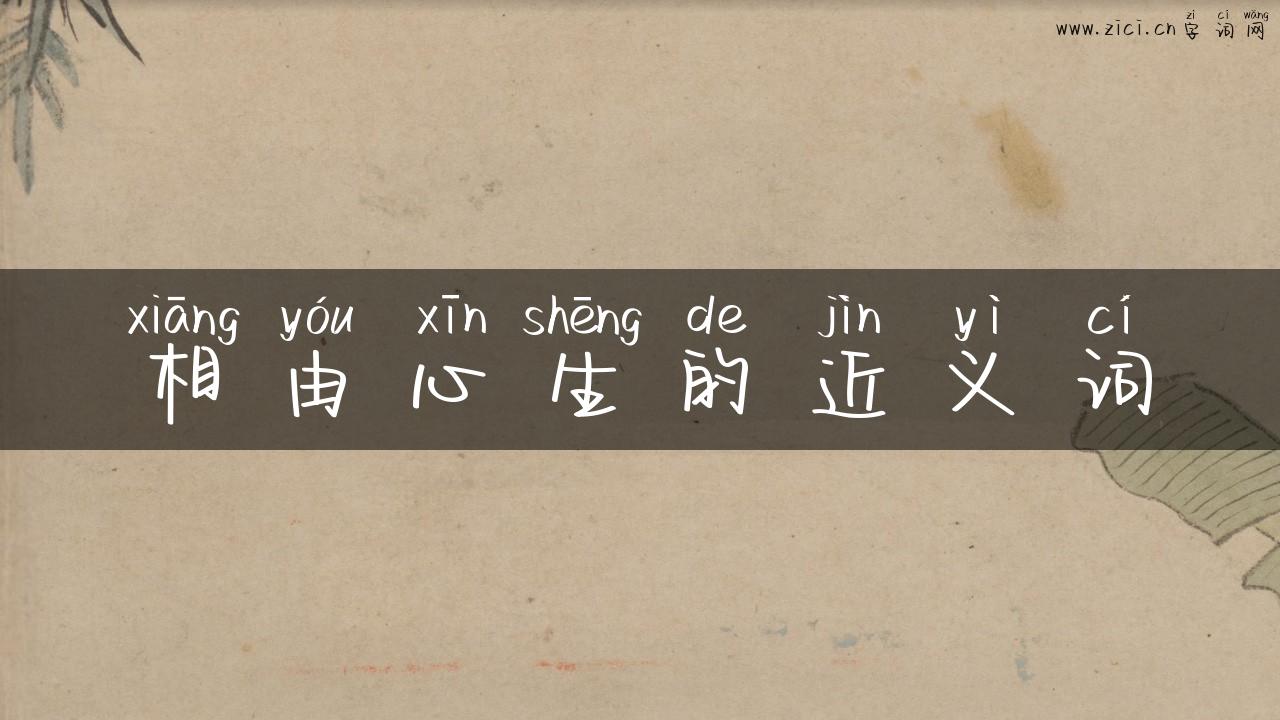 zì cí wǎng
www.zici.cn 字词网
xiāng yóu xīn shēng de jìn yì cí
相由心生的近义词